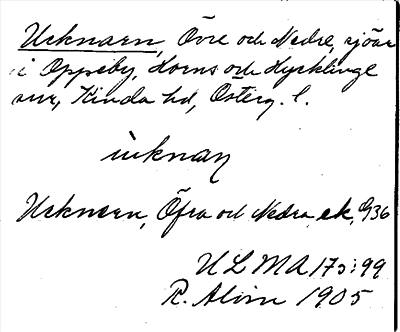 Ucknaen, Övre och Nedre, sjöar
i Oppeby, Horns och Hycklinge
snr, Kinda hd, Österg. l.
uknan
Ucknaen, Öfra och Nedra, ek, G36
ULMA 175:99
R. Alvin 1905